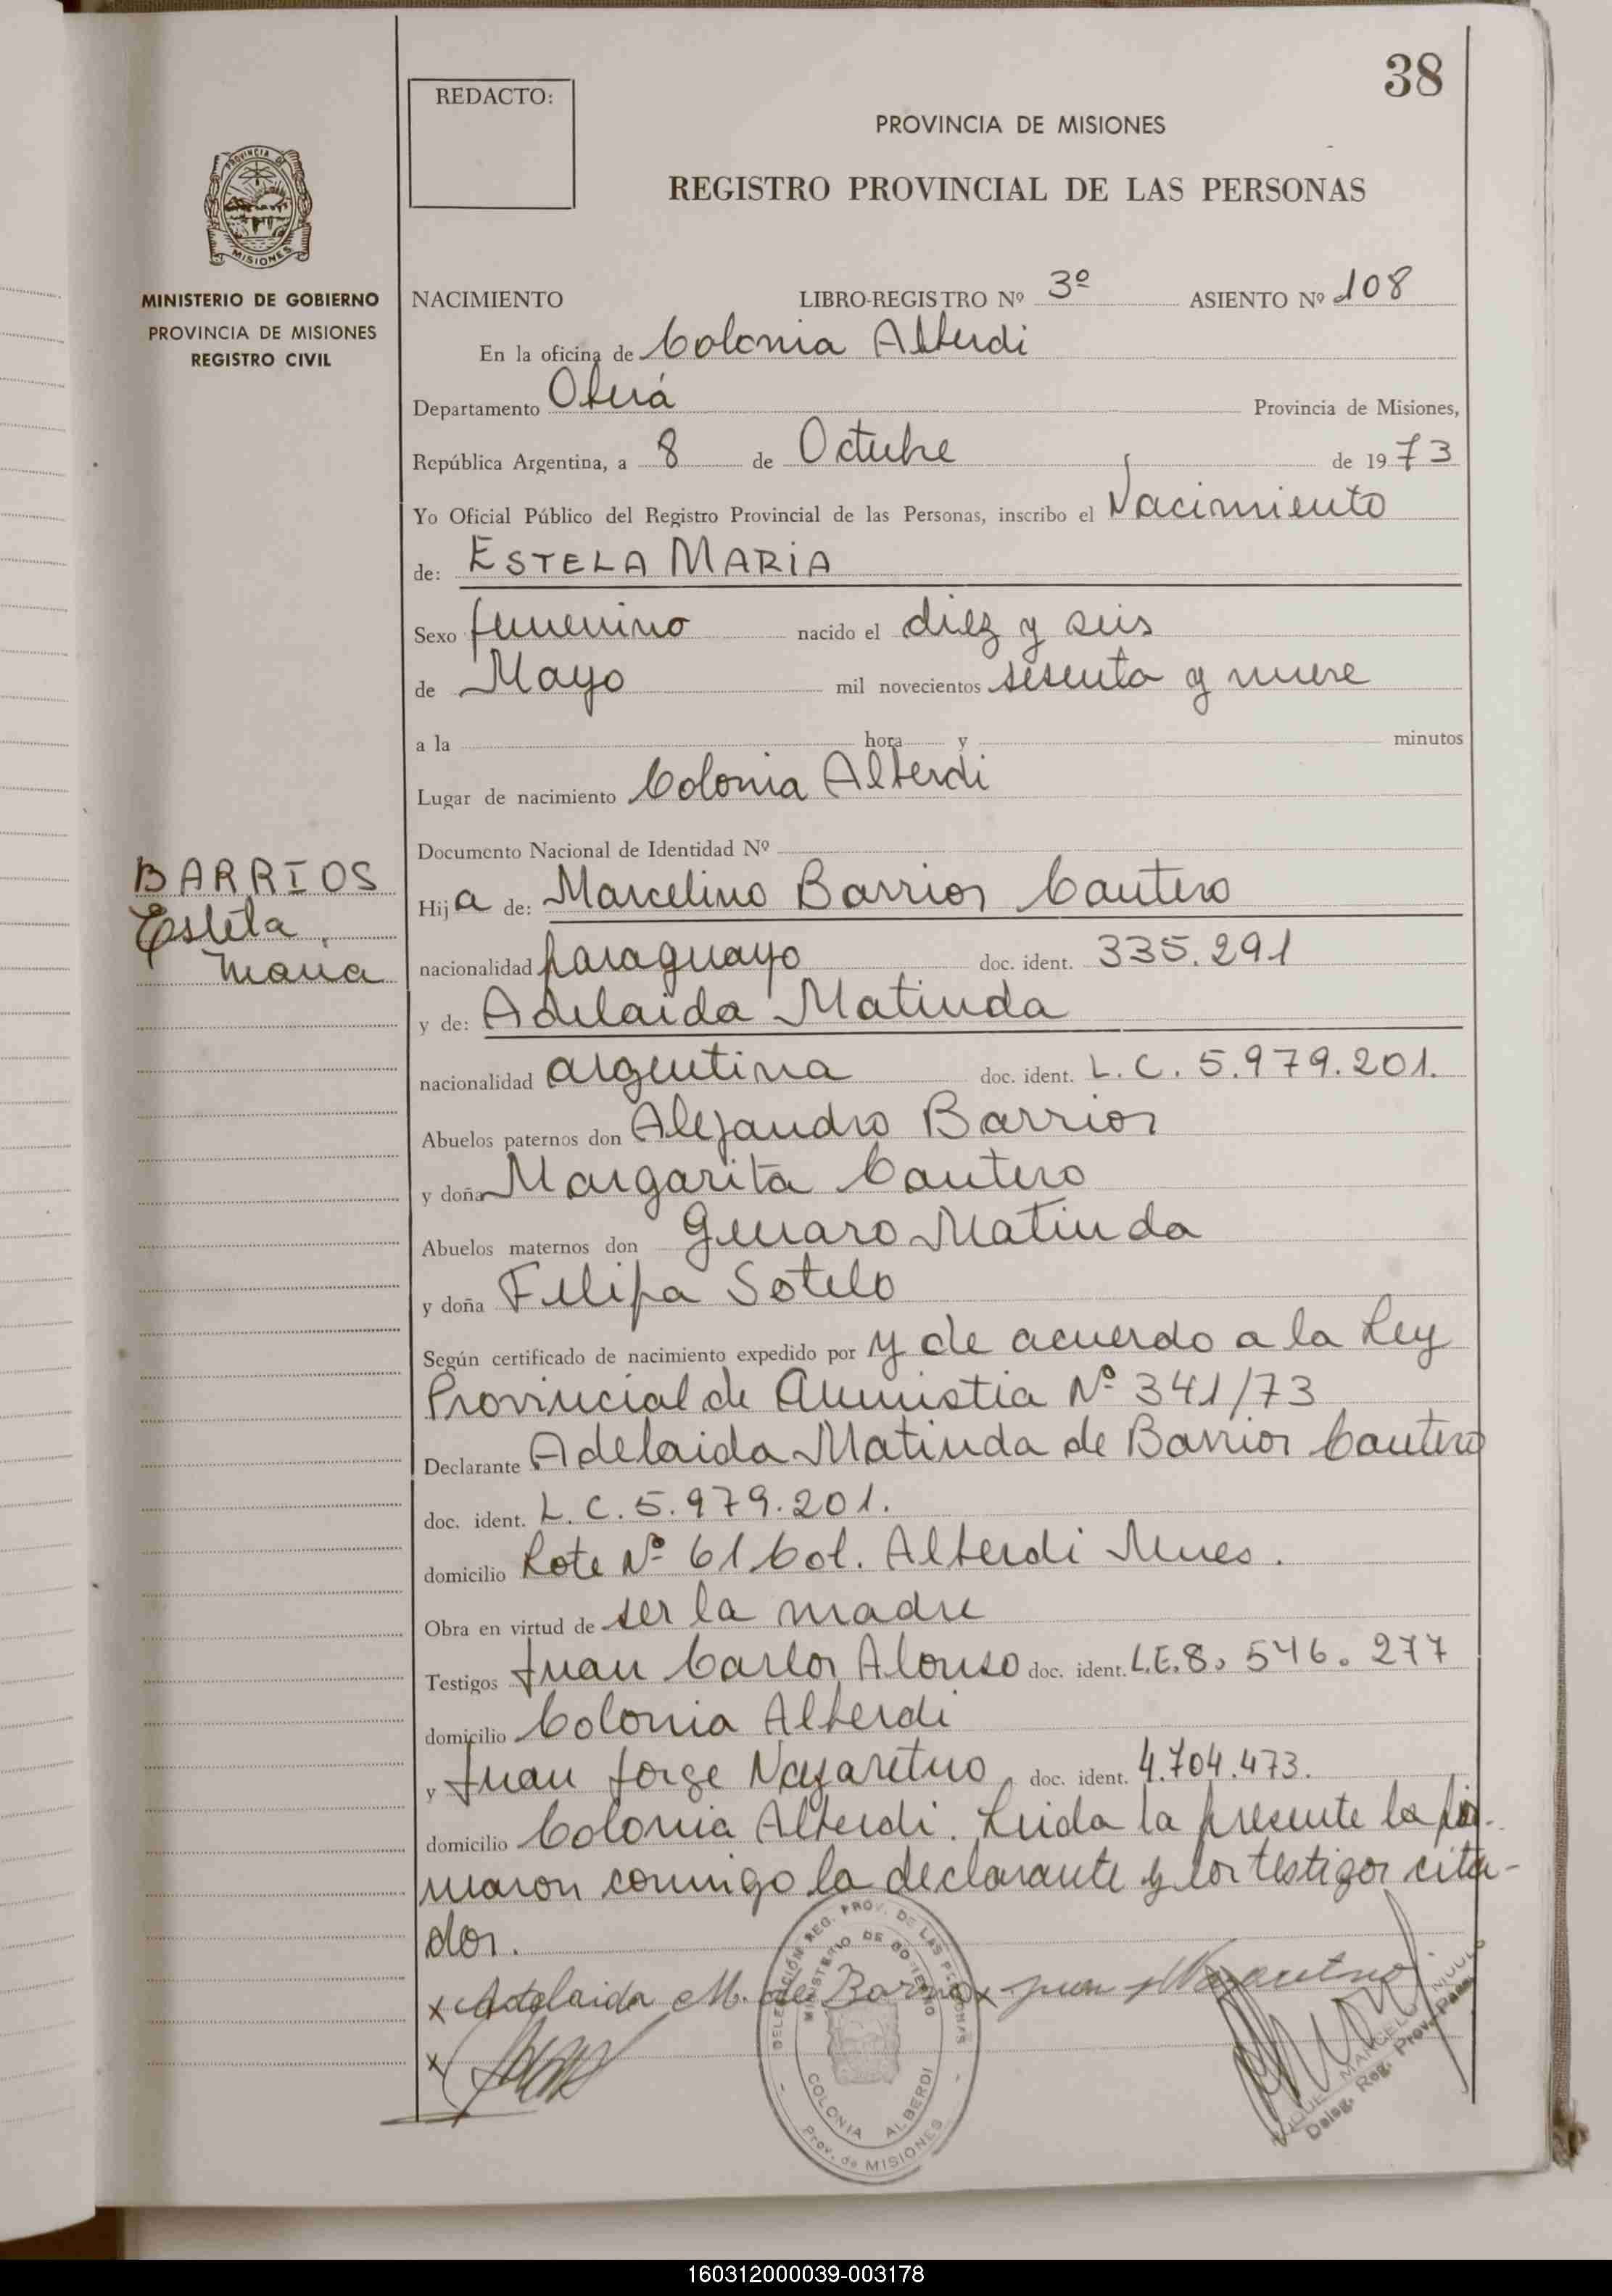 38
REDACTO:
PROVINCIA DE MISIONES
REGISTRO PROVINCIAL DE LAS PERSONAS
PROVINCIA DE
MISIONES
MINISTERIO DE GOBIERNO
PROVINCIA DE MISIONES
REGISTRO CIVIL
NACIMIENTO LIBRO-REGISTRO Nº 3º ASIENTO Nº 108
En la oficina de Colonia Alberdi
Departamento Oberá Provincia de Misiones,
República Argentina, a 8 de Octubre de 1973
Yo Oficial Público del Registro Provincial de las Personas, inscribo el Nacimiento
de: ESTELA MARIA
Sexo femenino nacido el diez y seis
de Mayo mil novecientos sesenta y nueve
a la hora y minutos
Lugar de nacimiento Colonia Alberdi
Documento Nacional de Identidad Nº
BARRIOS
Estela
Maria
Hija de: Marcelino Barrios Cantero
nacionalidad paraguayo doc. ident. 335.291
y de: Adelaida Matiuda
nacionalidad argentina doc. ident. L.C. 5.979.201.
Abuelos paternos don Alejandro Barrios
y doña Margarita Cantero
Abuelos maternos don Genaro Matiuda
y doña Felipa Sotelo
Según certificado de nacimiento expedido por y de acuerdo a la Ley
Provincial de Amnistia Nº 341/73
Declarante Adelaida Matiuda de Barrios Cantero
doc. ident. L.C. 5.979.201.
domicilio Lote Nº 61 Col. Alberdi Mnes.
Obra en virtud de ser la madre
Testigos Juan Carlos Alonso doc. ident. L.E. 8.546.277
domicilio Colonia Alberdi
y Juan Jorge Nazaretno doc. ident. 4.704.473.
domicilio Colonia Alberdi. Leida la presente la fir-
maron conmigo la declarante y los testigos cita-
dos.
x Adelaida M. de Barrios x Juan J Nazaretno
x
DELEGACIÓN REG. PROV. DE LAS PERSONAS
MINISTERIO DE GOBIERNO
COLONIA ALBERDI
Prov. de MISIONES
Deleg. Reg. Prov. Pers.
160312000039-003178